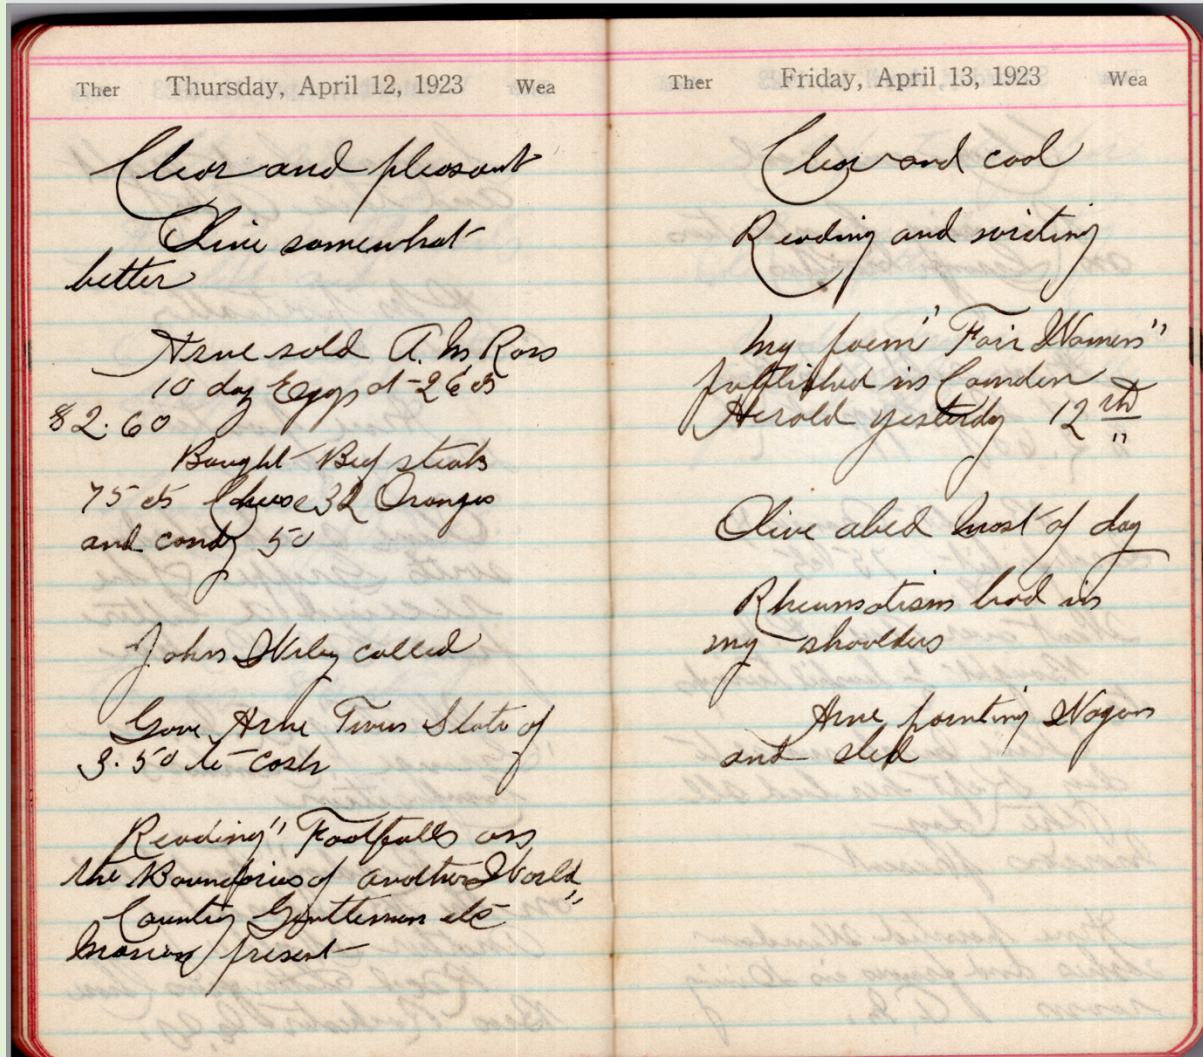 Ther Thursday, April 12, 1923 Wea
Clear and pleasant
Olive somewhat
better
Arne sold A. M Ross
10 doz Eggs at 26 cts
$2.60
Bought Beef steak
75 cts Cheese 32 Oranges
and candy 50
John Wiley called
Gave Arne Twin State of
3.50 to cash
Reading "Footfalls on
the Boundries of another World"
Country Gentleman etc
Marion present
Ther Friday, April 13, 1923 Wea
Clear and cool
Reading and writing
My poem "Fair Women"
published in Camden
Herald yesterdy 12th
"
Olive abed most of day
Rheumatism bad in
my shoulders
Arne painting Wagon
and sled